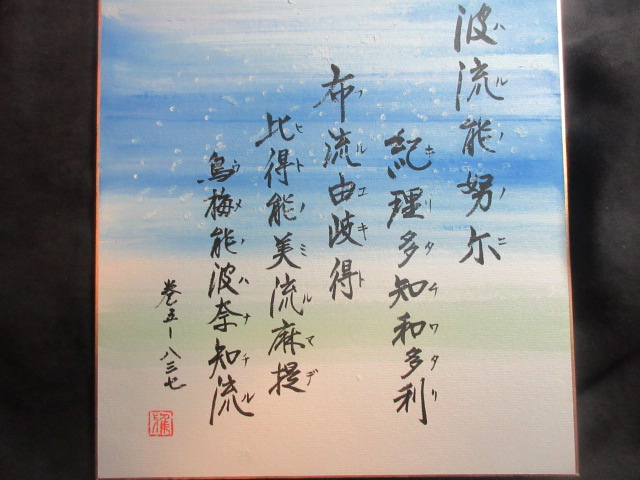 波流能努尓
ハルノノニ
紀理多知和多利
キリタチワタリ
布流由岐得
フルユキト
比得能美流麻提
ヒトノミルマデ
烏梅能波奈知流
ウメノハナチル
巻五ー八三七